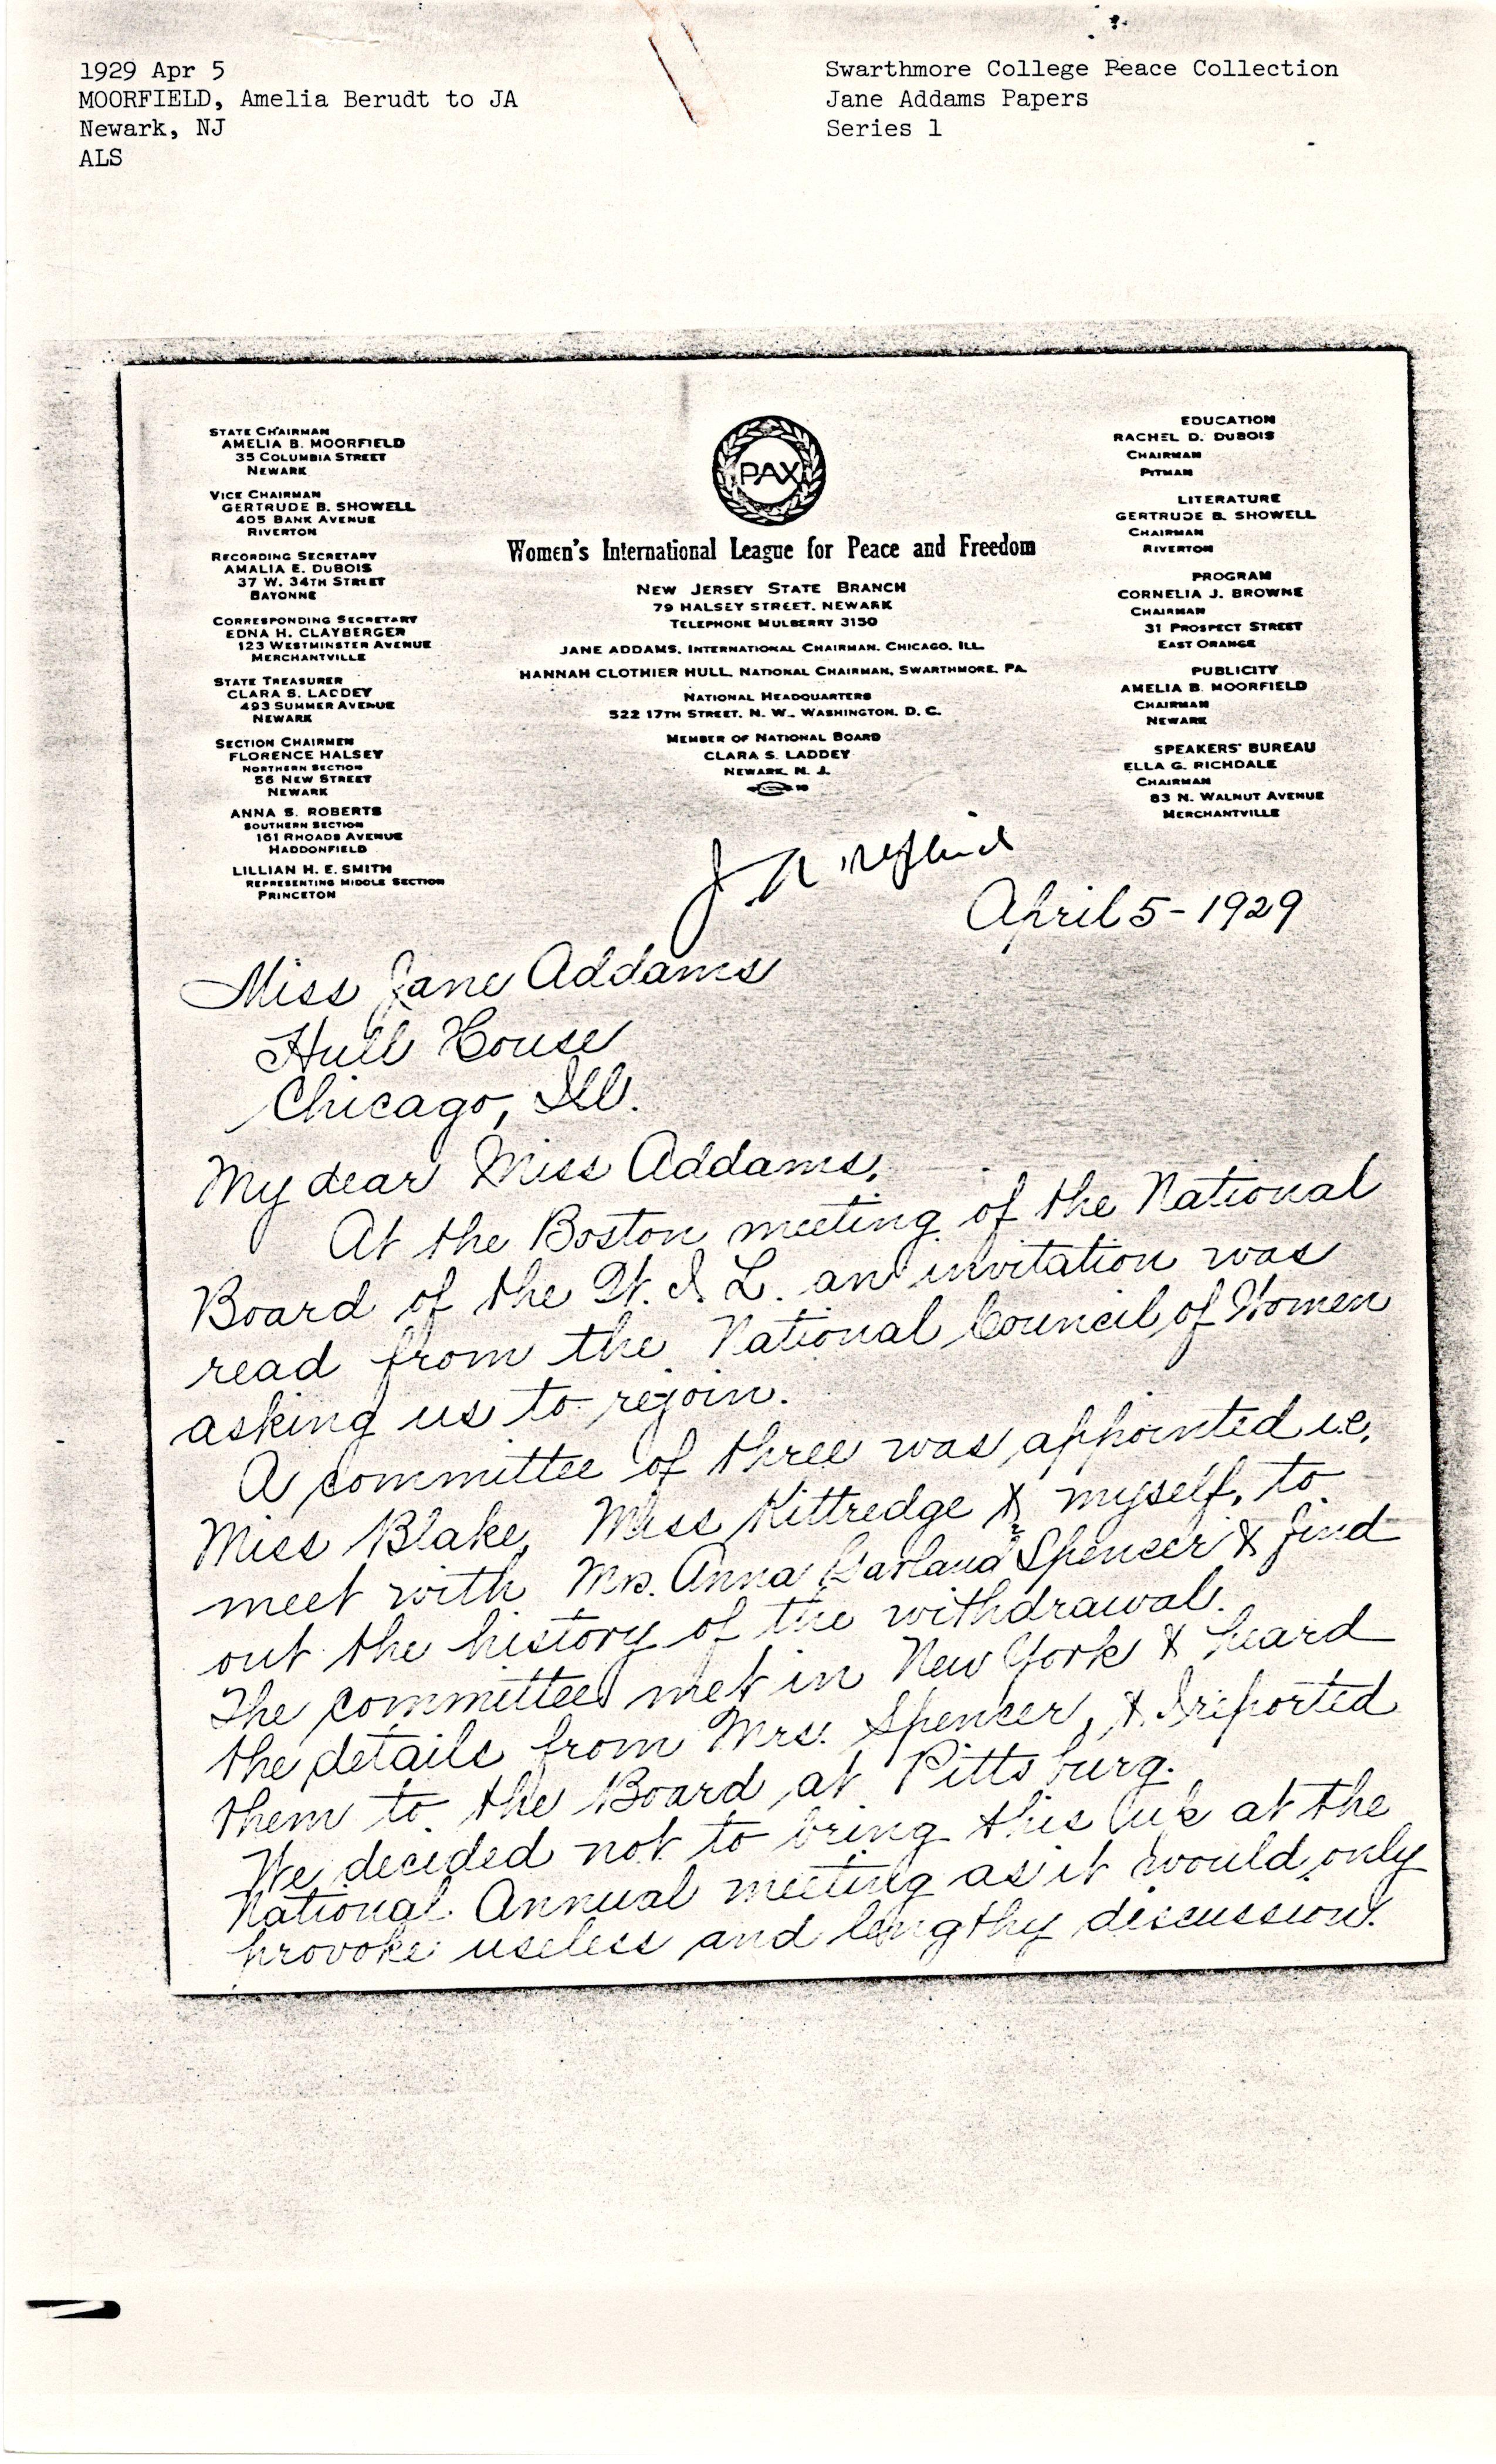 1929 Apr 5
MOORFIELD, Amelia Berudt to JA
Newark, NJ
ALS
Swarthmore College Peace Collection
Jane Addams Papers
Series 1
STATE CHAIRMAN
AMELIA B. MOORFIELD
35 COLUMBIA STREET
NEWARK
VICE CHAIRMAN
GERTRUDE B. SHOWELL
405 BANK AVENUE
RIVERTON
RECORDING SECRETARY
AMALIA E. DUBOIS
37 W. 34TH STREET
BAYONNE
CORRESPONDING SECRETARY
EDNA H. CLAYBERGER
123 WESTMINSTER AVENUE
MERCHANTVILLE
STATE TREASURER
CLARA S. LADDEY
493 SUMMER AVENUE
NEWARK
SECTION CHAIRMEN
FLORENCE HALSEY
NORTHERN SECTION
56 NEW STREET
NEWARK
ANNA S. ROBERTS
SOUTHERN SECTION
161 RHOADS AVENUE
HADDONFIELD
LILLIAN H. E. SMITH
REPRESENTING MIDDLE SECTION
PRINCETON
PAX
Women's International League for Peace and Freedom
NEW JERSEY STATE BRANCH
79 HALSEY STREET, NEWARK
TELEPHONE MULBERRY 3150
JANE ADDAMS, INTERNATIONAL CHAIRMAN, CHICAGO, ILL.
HANNAH CLOTHIER HULL, NATIONAL CHAIRMAN, SWARTHMORE, PA.
NATIONAL HEADQUARTERS
522 17TH STREET, N. W., WASHINGTON, D. C.
MEMBER OF NATIONAL BOARD
CLARA S. LADDEY
NEWARK, N. J.
EDUCATION
RACHEL D. DUBOIS
CHAIRMAN
PITMAN
LITERATURE
GERTRUDE B. SHOWELL
CHAIRMAN
RIVERTON
PROGRAM
CORNELIA J. BROWNE
CHAIRMAN
31 PROSPECT STREET
EAST ORANGE
PUBLICITY
AMELIA B. MOORFIELD
CHAIRMAN
NEWARK
SPEAKERS' BUREAU
ELLA G. RICHDALE
CHAIRMAN
83 N. WALNUT AVENUE
MERCHANTVILLE
April 5 - 1929
Miss Jane Addams
Hull House
Chicago, Ill.
My dear Miss Addams,
At the Boston meeting of the National
Board of the W. I. L. an invitation was
read from the National Council of Women
asking us to rejoin.
A committee of three was appointed i.e,
Miss Blake, Miss Kittredge & myself, to
meet with Mrs. Anna Garland Spencer & find
out the history of the withdrawal.
The committee met in New York & heard
the details from Mrs. Spencer, & I reported
them to the Board at Pittsburg.
We decided not to bring this up at the
National Annual meeting as it would only
provoke useless and lengthy discussion.